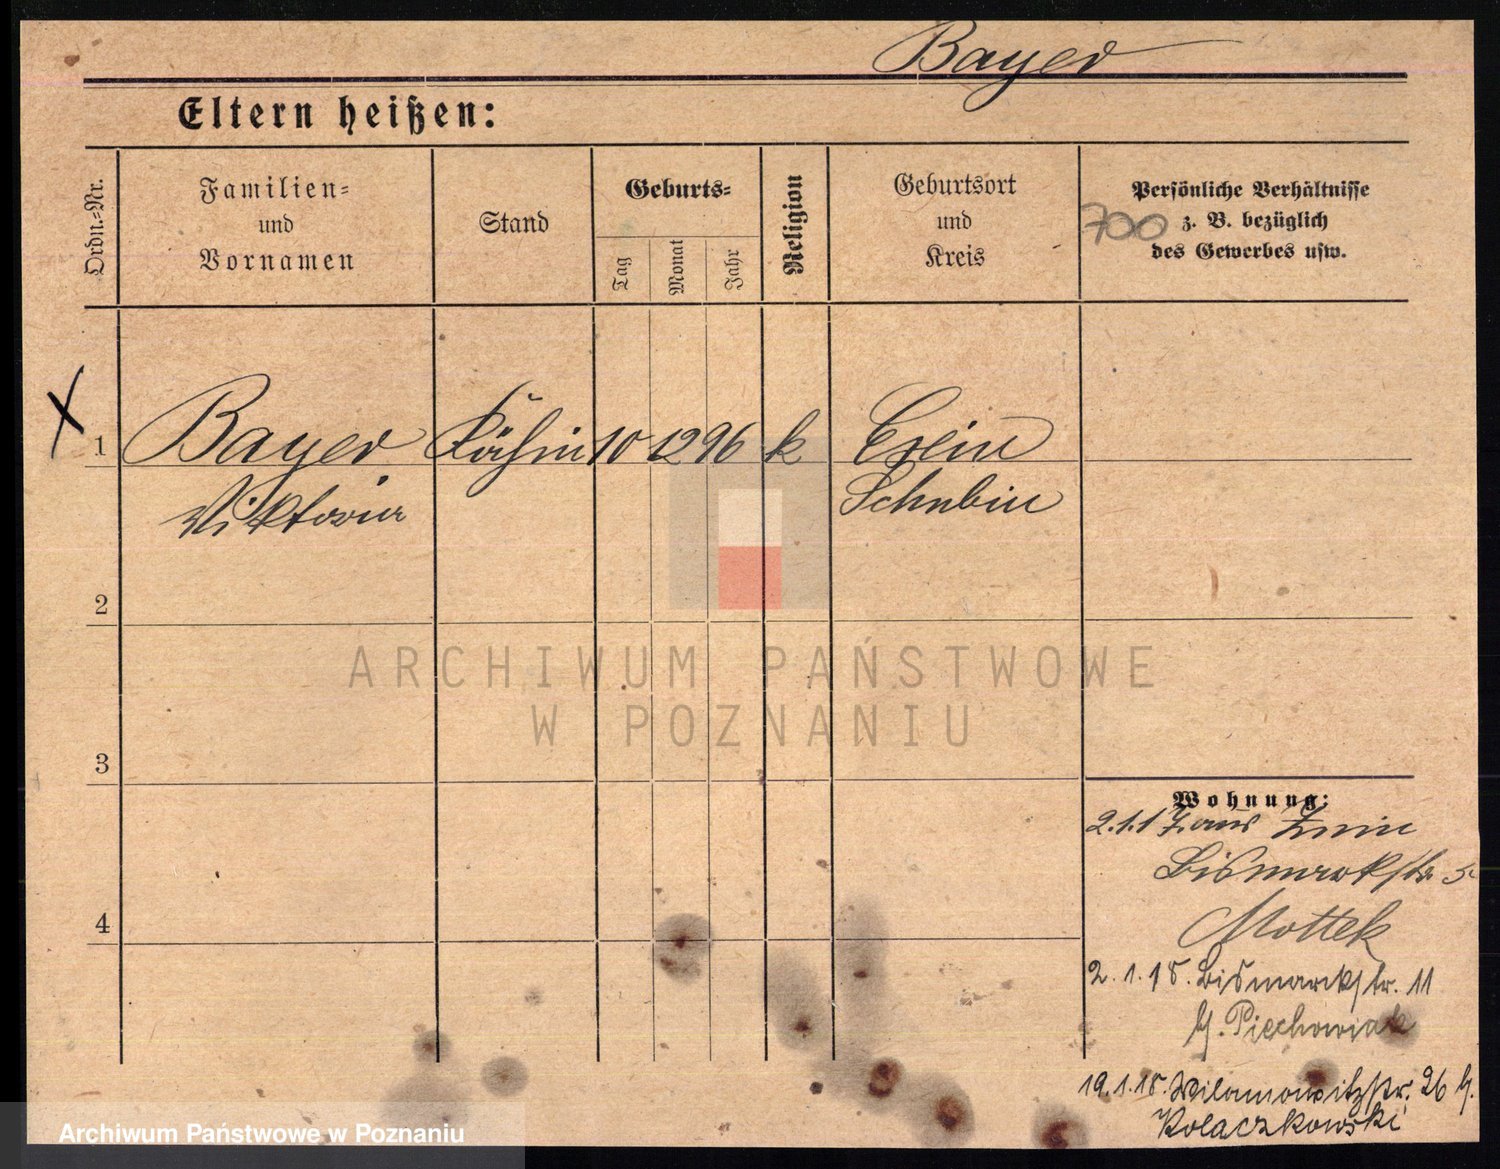 Bayer
Eltern heißen:
Ordn.-Nr.
Familien-
und
Vornamen
Stand
Geburts-
Tag
Monat
Jahr
Religion
Geburtsort
und
Kreis
Persönliche Verhältnisse
z. B. bezüglich
des Gewerbes usw.
700
1 Bayer Köchin 10 12 96 k Exin
Viktoria Schubin
2
3
4
Wohnung:
2.1.17. aus Znin
Bismarckstr. 5
Mottek
2.1.18. Bismarckstr. 11
b. Piechowiak
19.1.18. Wilamowitzstr. 26 b.
Kolaczkowski
ARCHIWUM PAŃSTWOWE
W POZNANIU
Archiwum Państwowe w Poznaniu